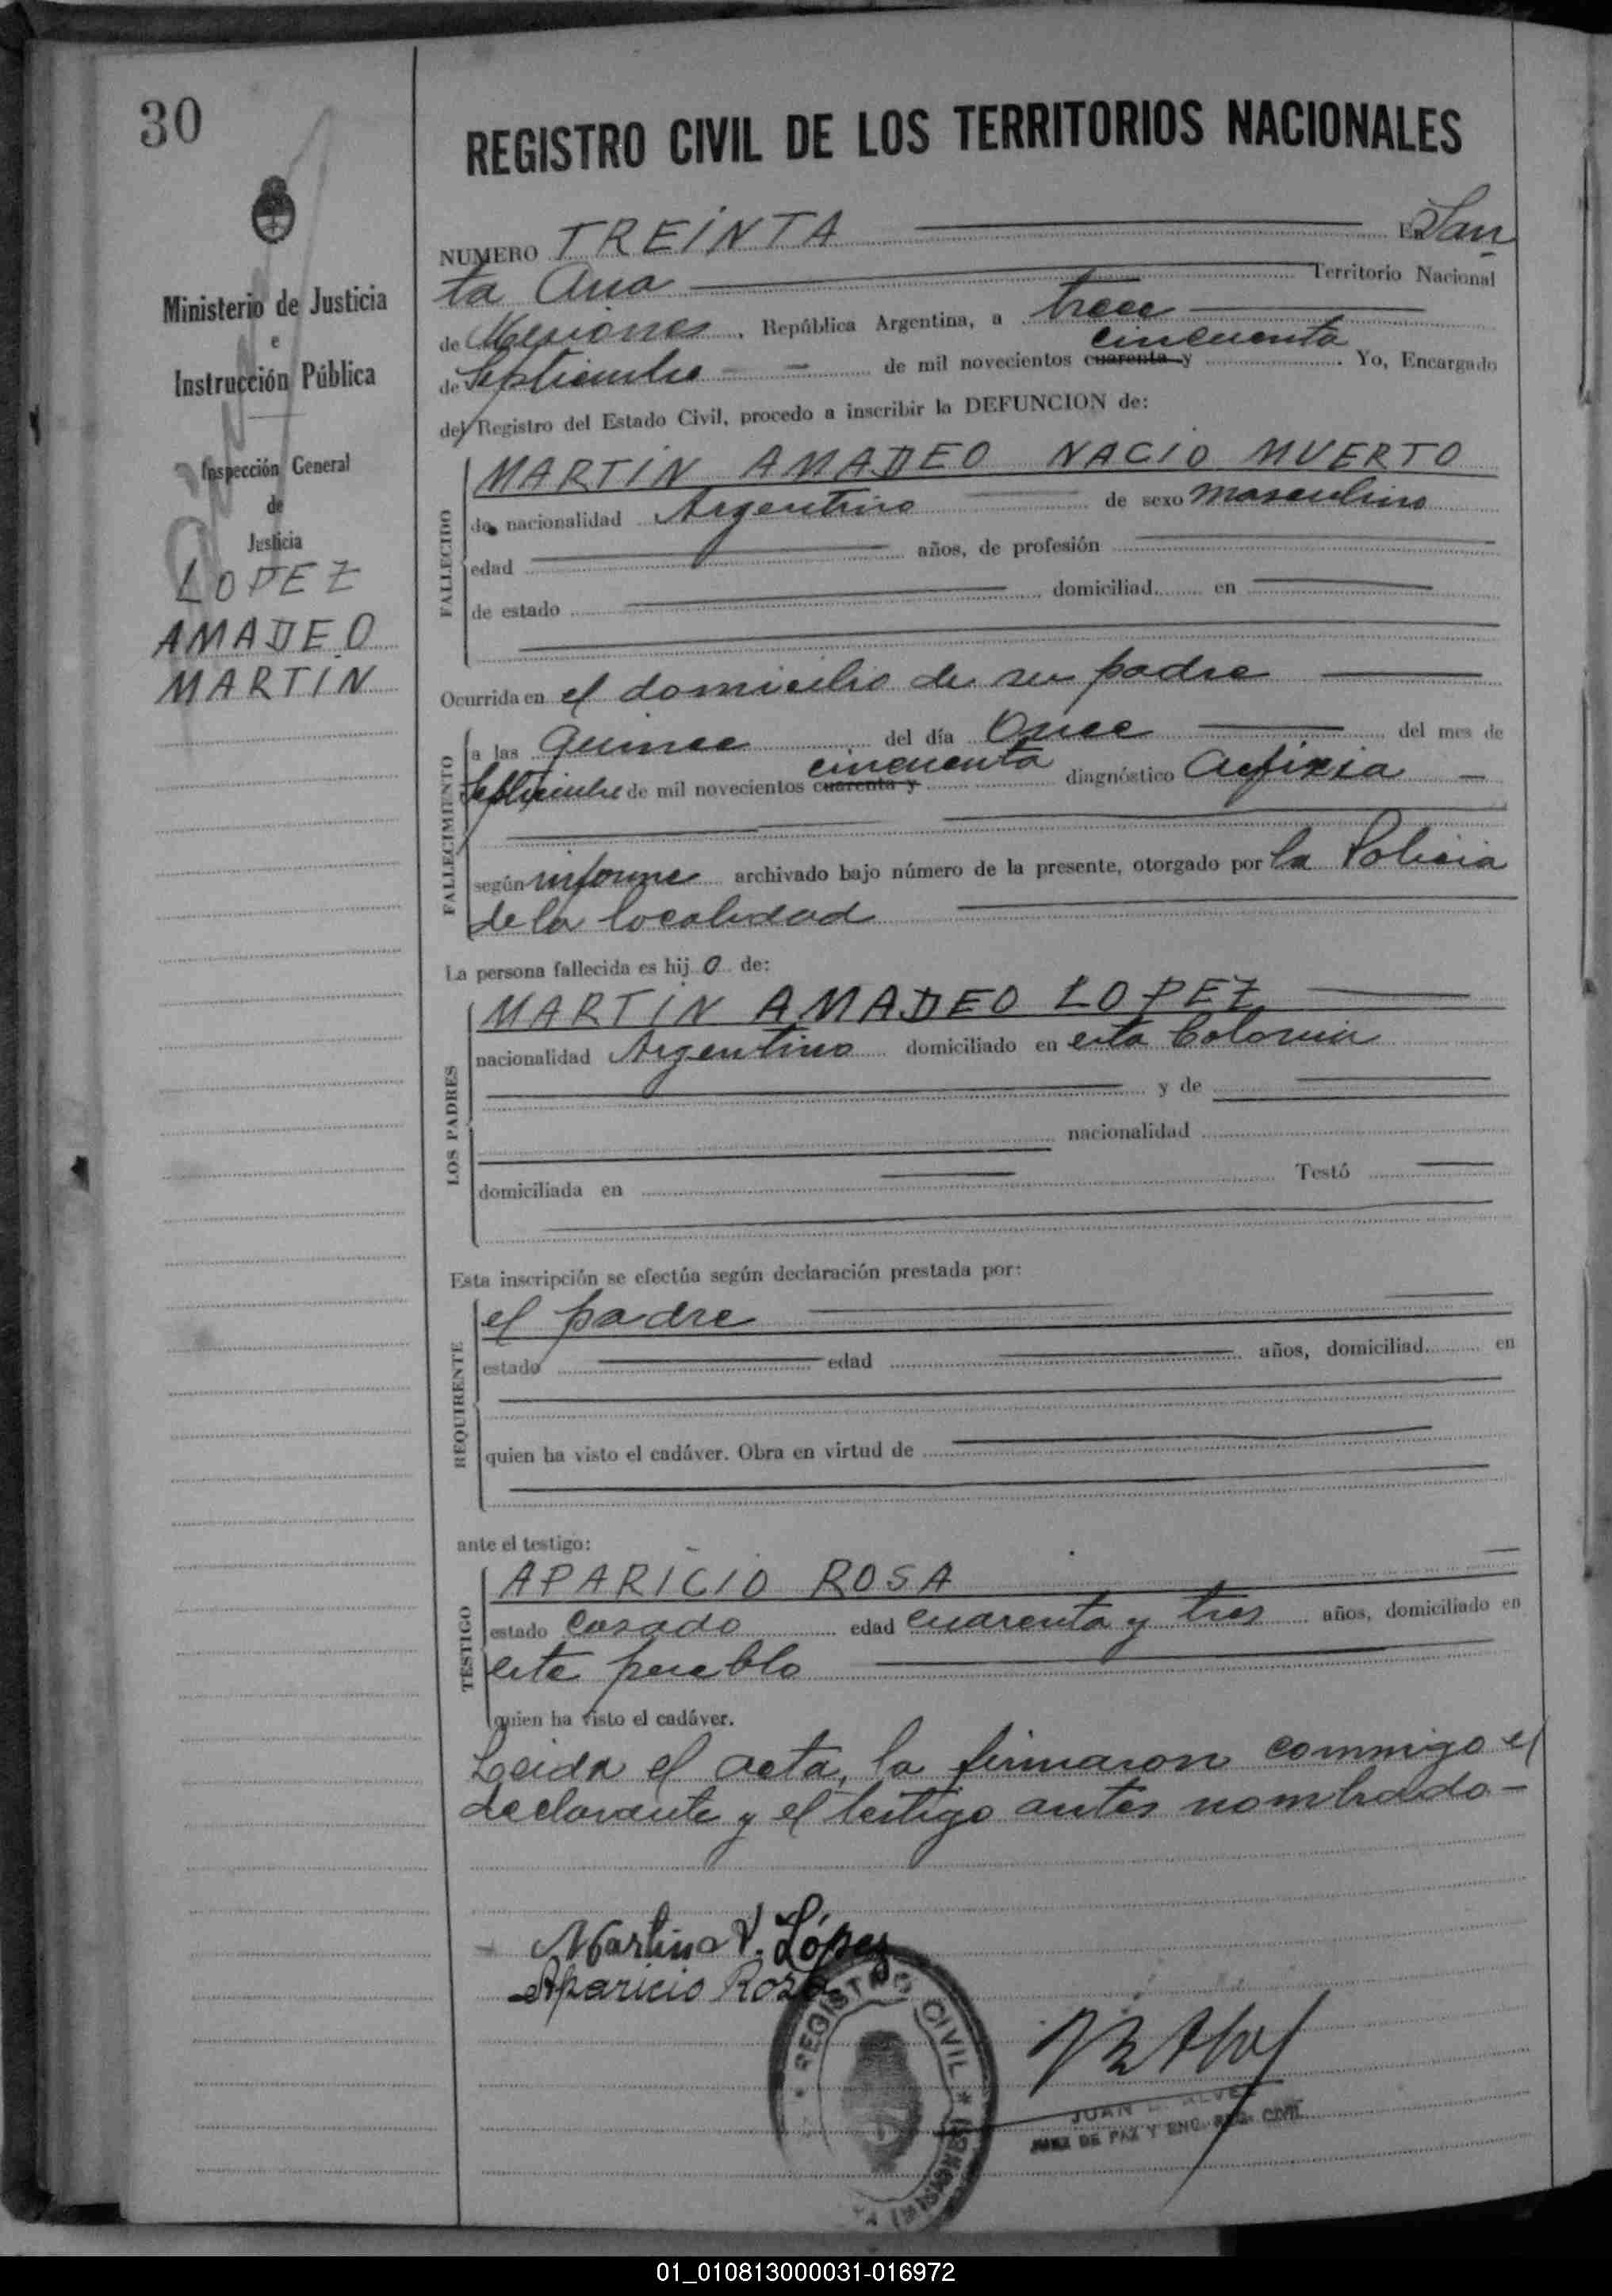 30
REGISTRO CIVIL DE LOS TERRITORIOS NACIONALES
Ministerio de Justicia
e
Instrucción Pública
Inspección General
de
Justicia
LOPEZ
AMADEO
MARTIN
NUMERO TREINTA En San
ta Ana Territorio Nacional
de Misiones, República Argentina, a trece
de Septiembre de mil novecientos cuarenta y cincuenta Yo, Encargado
del Registro del Estado Civil, procedo a inscribir la DEFUNCION de:
FALLECIDO
MARTIN AMADEO NACIO MUERTO
de nacionalidad Argentino de sexo masculino
edad años, de profesión
de estado domiciliad en
Ocurrida en el domicilio de su padre
FALLECIMIENTO
a las Quince del día Once del mes de
Septiembre de mil novecientos cuarenta y cincuenta diagnóstico Asfixia
según informe archivado bajo número de la presente, otorgado por la Policia
de la localidad
La persona fallecida es hijo de:
LOS PADRES
MARTIN AMADEO LOPEZ
nacionalidad Argentino domiciliado en esta Colonia
y de
nacionalidad
domiciliada en Testó
Esta inscripción se efectúa según declaración prestada por:
REQUIRENTE
el padre
estado edad años, domiciliad en
quien ha visto el cadáver. Obra en virtud de
ante el testigo:
TESTIGO
APARICIO ROSA
estado casado edad cuarenta y tres años, domiciliado en
este pueblo
quien ha visto el cadáver.
Leida el acta, la firmaron conmigo el
declarante y el testigo antes nombrado-
Martin A. López
Aparicio Rosa
REGISTRO CIVIL
JUAN ALVEZ
JUEZ DE PAZ Y ENC. REG. CIVIL
01_010813000031-016972